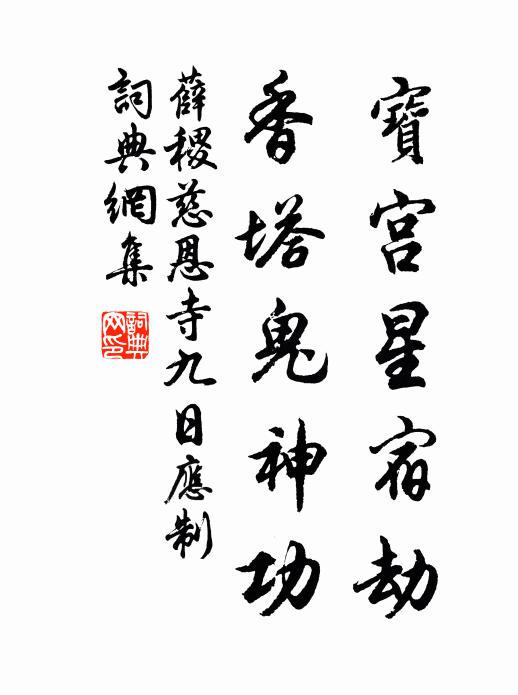 寶宮星宿劫
香塔鬼神功
薛稷慈恩寺九日應制
詞典網集
詞典網印